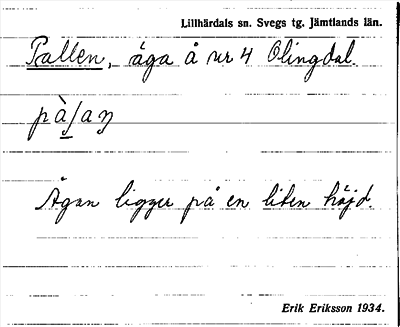 Lillhärdals sn. Svegs tg. Jämtlands län.
Pallen, äga å nr 4 Olingdal.
Ägan ligger på en liten höjd.
Erik Eriksson 1934.